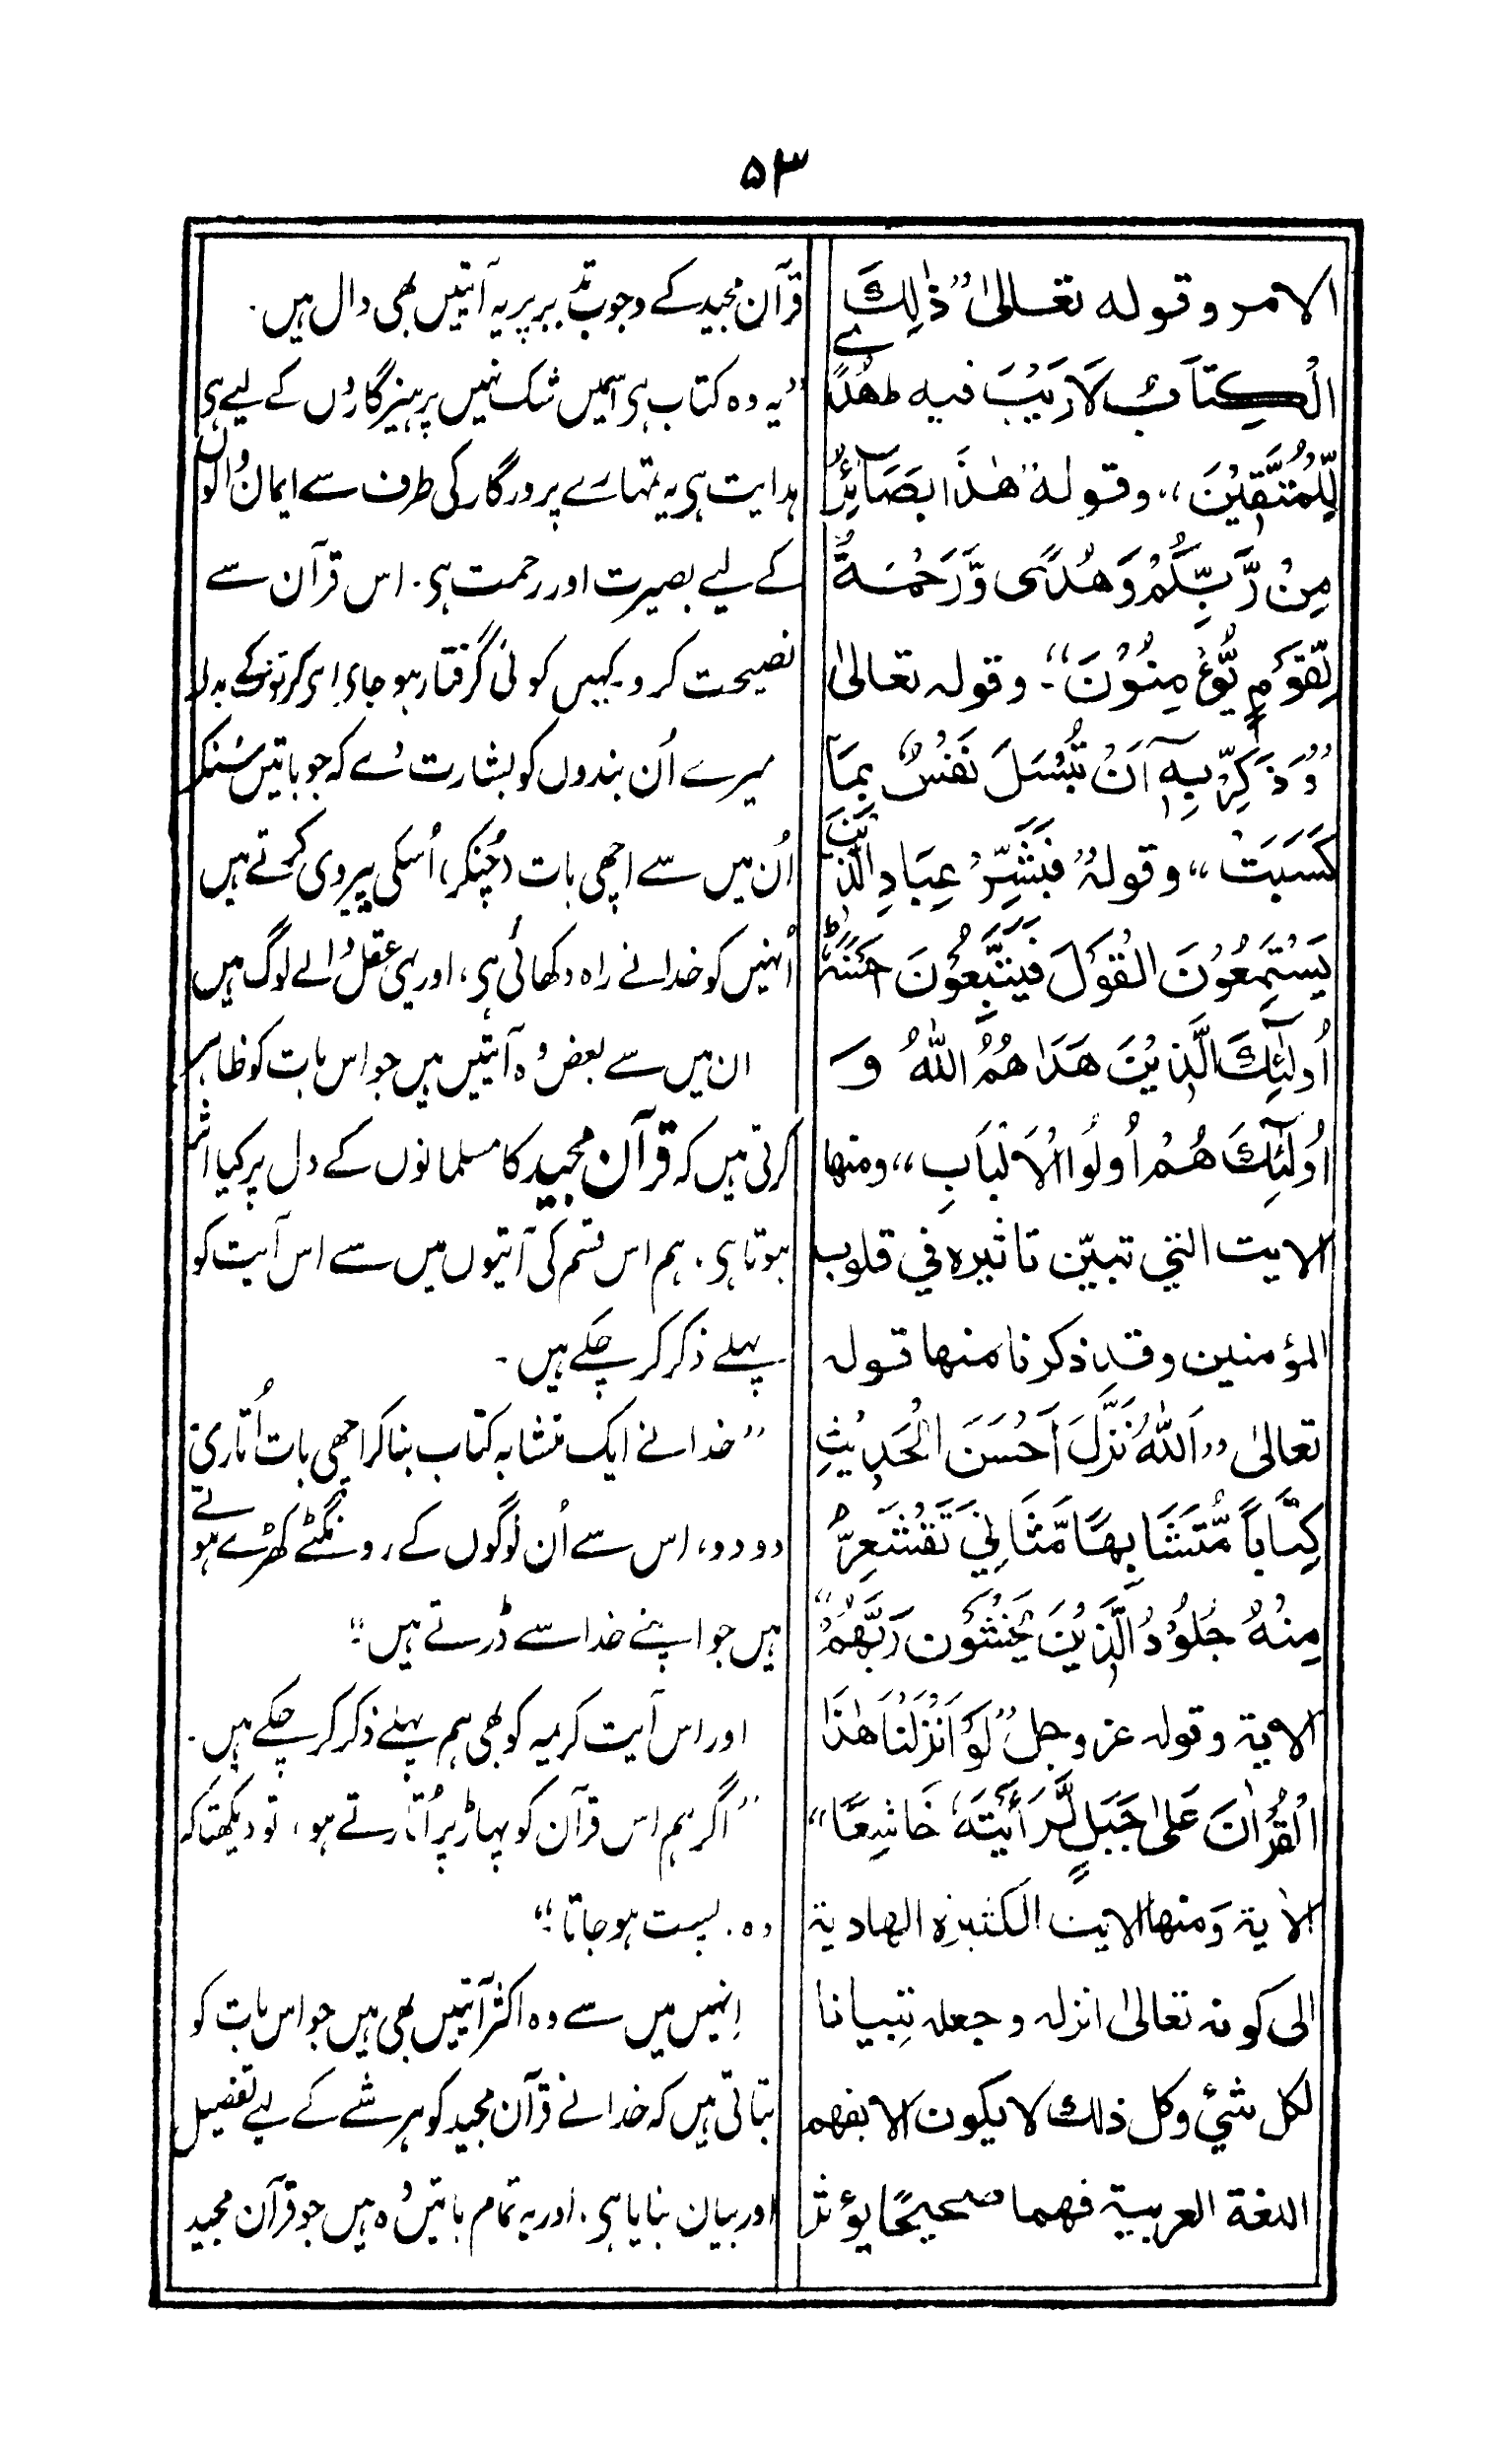 ۵۳
الامر وقوله تعالیٰ ”ذٰلِكَ
الْكِتَابُ لَارَيْبَ فيه ھُدًے
لِّلْمُتَّقِيْنَ“، وقوله ”هٰذَا بَصَآئِرُ
مِنْ رَّبِّكُمْ وَهُدًى وَّرَحْمَةٌ
لِّقَوْمٍ يُّؤْمِنُوْنَ“۔ وقوله تعالیٰ
”وَذَكِّرْ بِهٖٓ اَنْ تُبْسَلَ نَفْسٌ بِمَا
كَسَبَتْ“ وقولهٗ ”فَبَشِّرْ عِبَادِ الَّذِيْنَ
يَسْتَمِعُوْنَ الْقَوْلَ فَيَتَّبِعُوْنَ اَحْسَنَهٗ ط
اُولٰٓئِكَ الَّذِيْنَ هَدَاهُمُ اللّٰهُ وَ
اُولٰٓئِكَ هُمْ اُولُوا الْاَلْبَابِ“، ومنها
الايت التي تبيّن تاثيره في قلوب
المؤمنين وقد ذكرنا منها قوله
تعالیٰ ”اَللّٰهُ نَزَّلَ اَحْسَنَ الْحَدِيْثِ
كِتَاباً مُّتَشَابِهًا مَّثَانِيَ تَقْشَعِرُّ
مِنْهُ جُلُوْدُ الَّذِيْنَ يَخْشَوْنَ رَبَّهُمْ“
الاية وقوله عز وجل ”لَوْ اَنْزَلْنَا هٰذَا
الْقُرْاٰنَ عَلیٰ جَبَلٍ لَّرَأَيْتَهٗ خَاشِعًا“
الاٰية وَمنها الايت الكثيرة الهادية
الی كونه تعالیٰ انزله وجعله تِبيانا
لكل شئ وكل ذلك لا يكون الا بفهم
اللغة العربية فهما صحيحًا يؤثر
قرآن مجید کے وجوبِ تدبر پر یہ آیتیں بھی دال ہیں۔
”یہ وہ کتاب ہی اسمیں شک نہیں پرہیزگاروں کے لیے ہی
ہدایت ہی یہ تمہارے پرورگار کی طرف سے ایمان والوں
کے لیے بصیرت اور رحمت ہی۔ اس قرآن سے
نصیحت کرو۔ کہیں کوئی گرفتار ہو جائے اپنی کرتوت کے بدلے
میرے اُن بندوں کو بشارت دے کہ جو باتیں سُنکر
اُن میں سے اچھی بات (چُنکر) اُسکی پیروی کرتے ہیں
اُنہیں کو خدا نے راہ دکھائی ہی، اور یہی عقل والے لوگ ہیں
ان میں سے بعض وہ آیتیں ہیں جو اس بات کو ظاہر
کرتی ہیں کہ قرآن مجید کا مسلمانوں کے دل پر کیا اثر
ہوتا ہی۔ ہم اس قسم کی آیتیوں میں سے اس آیت کو
پہلے ذکر کر چکے ہیں۔
”خدا نے ایک متشابہ کتاب بنا کر اچھی بات اُتاری
دو دو، اس سے اُن لوگوں کے رونگٹے کھڑے ہوتے
ہیں جو اپنے خدا سے ڈرتے ہیں“
اور اس آیت کریمہ کو بھی ہم پہلے ذکر کر چکے ہیں۔
”اگر ہم اس قرآن کو پہاڑ پر اُتارتے ہو، تو دیکھتا کہ
وہ۔ پست ہو جاتا“
اِنہیں میں سے وہ اکثر آیتیں بھی ہیں جو اس بات کو
بتاتی ہیں کہ خدا نے قرآن مجید کو ہر شے کے لیے تفصیل
اور بیان بنایا ہی۔ اور یہ تمام باتیں وہ ہیں جو قرآن مجید